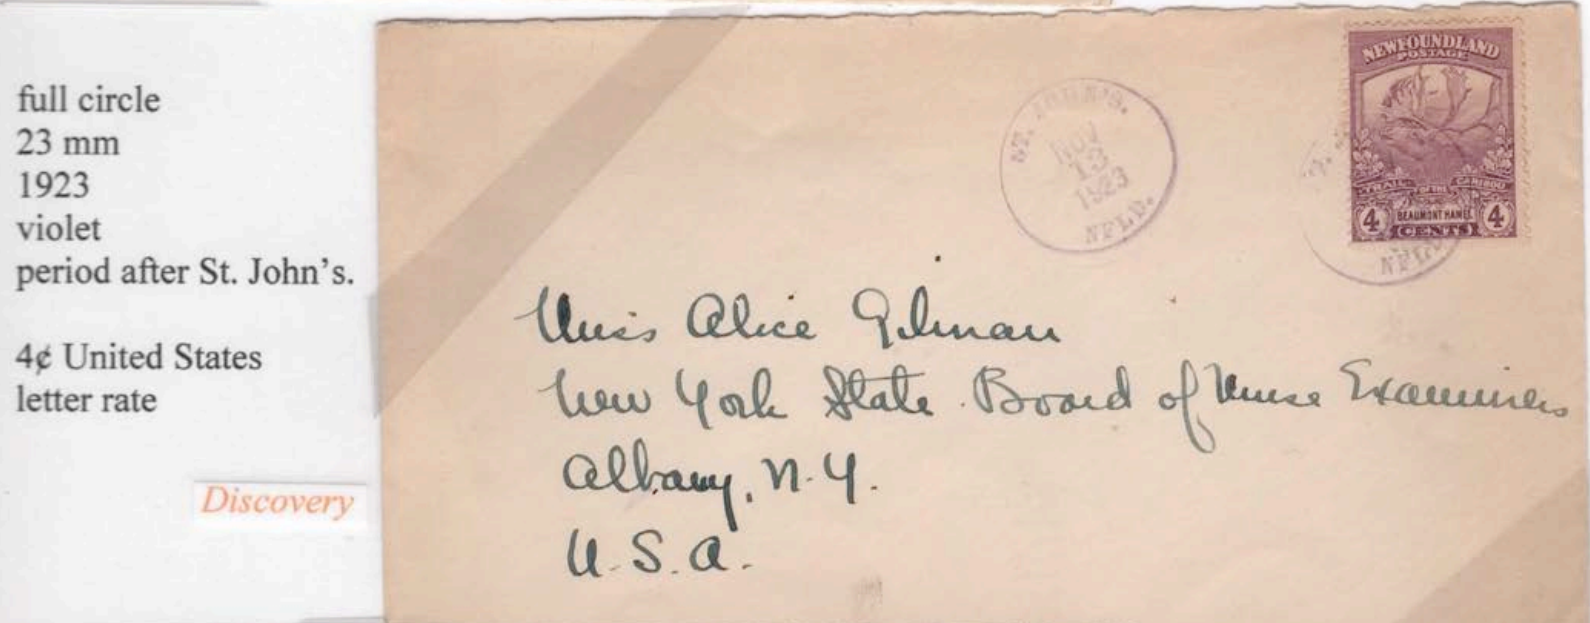 full circle
23 mm
1923
violet
period after St. John's.
4¢ United States
letter rate
Discovery
ST. JOHN'S.
NOV
13
1923
NFLD.
NEWFOUNDLAND
POSTAGE
TRAIL OF THE CARIBOU
4 BEAUMONT HAMEL 4
CENTS
NFLD
Miss Alice Gilman
New York State Board of Nurse Examiners
Albany, N.Y.
U.S.A.